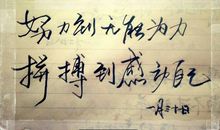 努力到无能为力
拼搏到感动自己
一月三十日